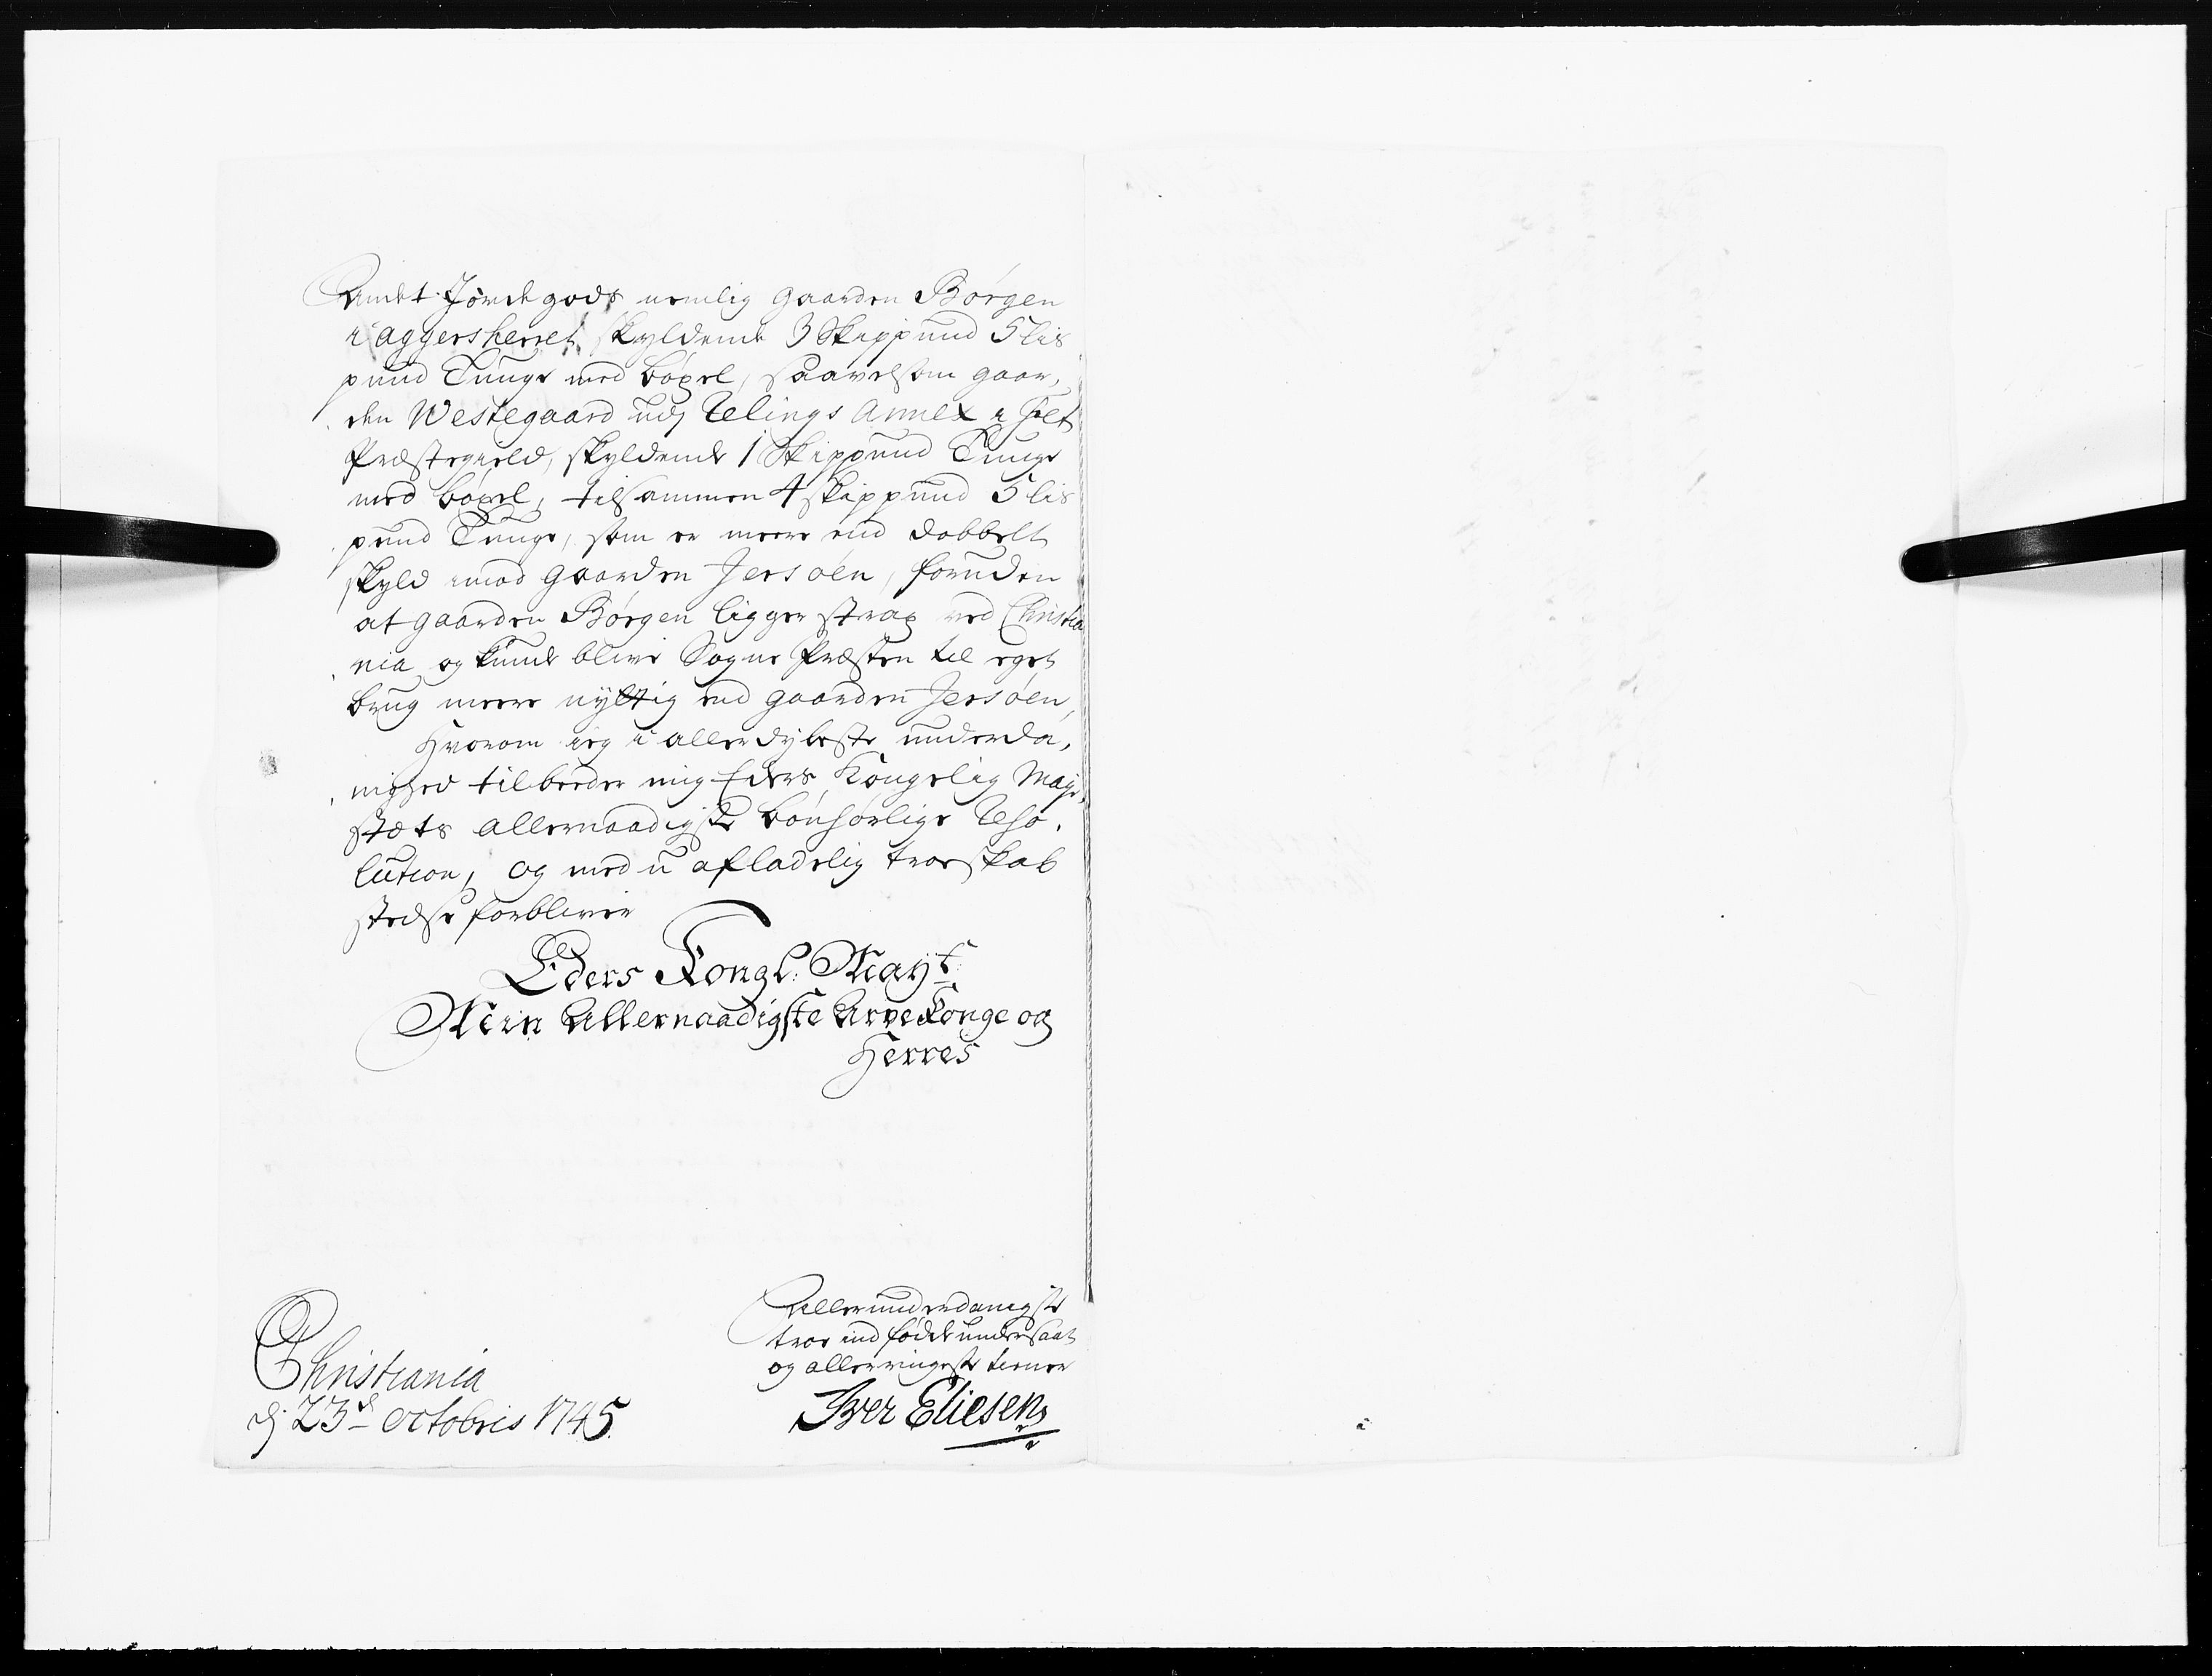 Andet Jordegods nemlig gaarden Börgen
i Aggersherret skyldende 3 Skippund 5 lis
pund Tunge med böxel, saavelsom gaar,
den Westegaard udj Ulings Annex i
Præstegield, skyldende 1 Skippund Tunge
med böxel, tilsammen 4 skippund 5 lis
pund Tunge, som er meere end dobbelt
skyld imod gaarden Jersöen, foruden
at gaarden Börgen ligger strax ved Christia
nia og kunde blive Sogne Præsten til eget
brug meere nÿttig end gaarden Jersöen,
Hvorom ieg i allerdÿbeste underda,
nighed tilbeeder mig Eders Kongelig Maje,
stæts allernaadigste bönhörlige Reso,
lution, og med u afladelig troeskab
stedse forbliver
Eders Kongl: Mayt:
Min Allernaadigste Arve Konge og
Herres
Allerunderdanigste
troe ind födde undersaat
og allerringeste tiener
Iver Eliesen
Christiania
dj 23de octobris 1745.